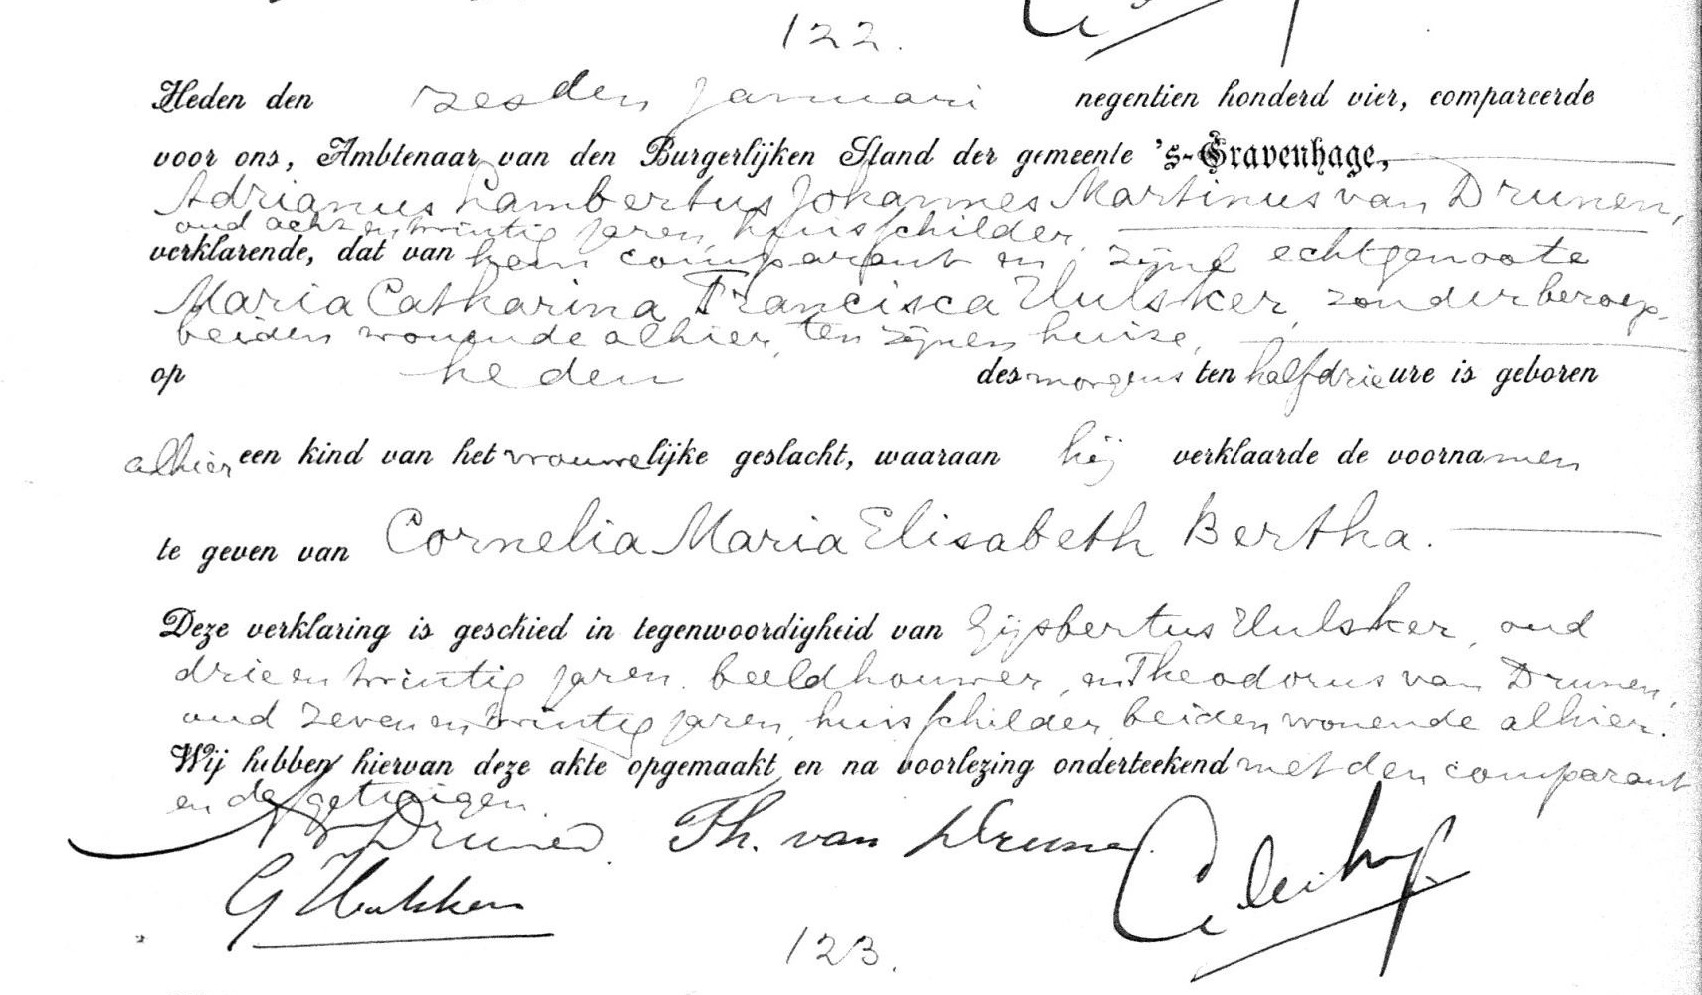 122.
Heden den zesden Januari negentien honderd vier, compareerde
voor ons, Ambtenaar van den Burgerlijken Stand der gemeente 's-Gravenhage,
Adrianus Lambertus Johannes Martinus van Drunen,
oud acht en twintig jaren, huisschilder,
verklarende, dat van hem comparant en zijne echtgenoote
Maria Catharina Francisca Uulsker, zonder beroep,
beiden wonende alhier, ten zijnen huize,
op heden des morgens ten half drie ure is geboren
alhier een kind van het vrouwelijke geslacht, waaraan hij verklaarde de voornamen
te geven van Cornelia Maria Elisabeth Bertha.
Deze verklaring is geschied in tegenwoordigheid van Gijsbertus Uulsker, oud
drie en twintig jaren, beeldhouwer, en Theodorus van Drunen,
oud zeven en twintig jaren, huisschilder, beiden wonende alhier.
Wij hebben hiervan deze akte opgemaakt en na voorlezing onderteekend met den comparant
en de getuigen.
Drunen. Th. van Drunen.
G
123.